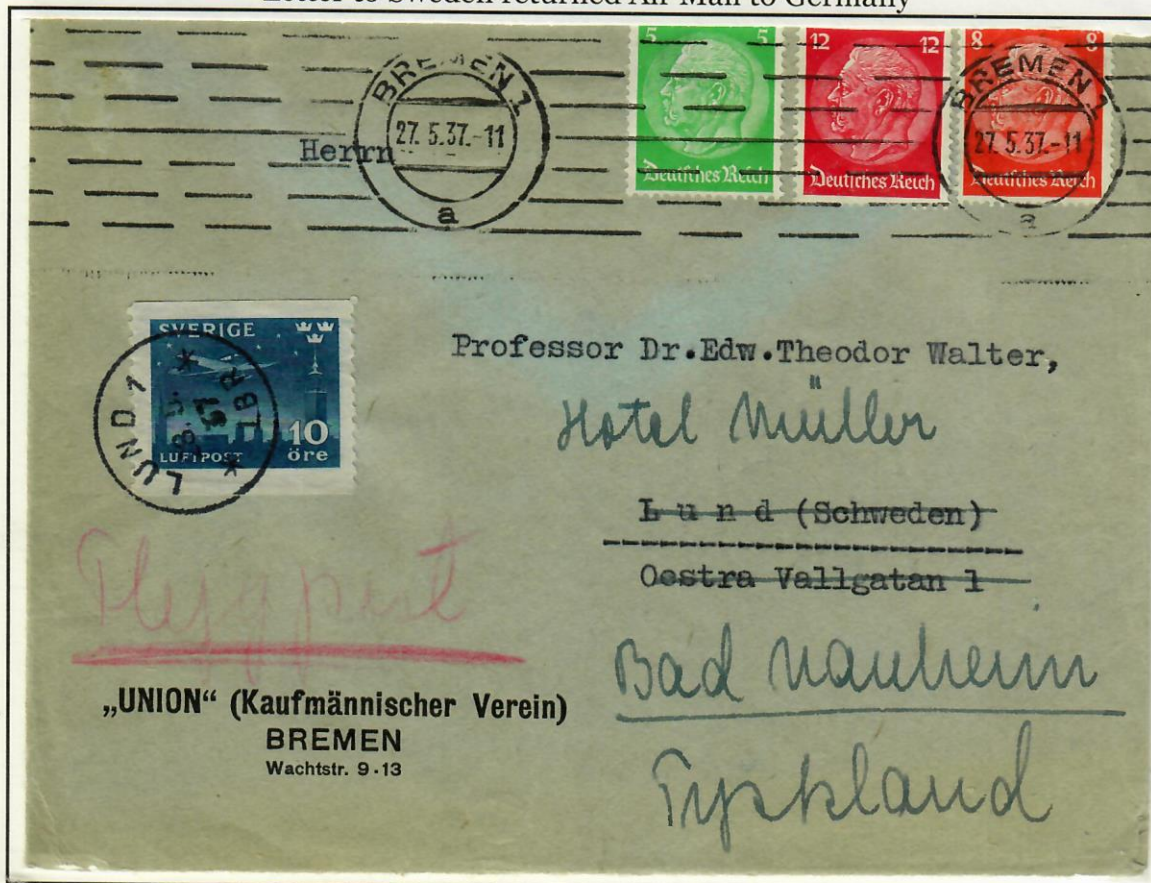 Letter to Sweden returned Air Mail to Germany
BREMEN 1
27.5.37.-11
a
5 5
Deutsches Reich
12 12
Deutsches Reich
8 8
Deutsches Reich
BREMEN 1
27.5.37.-11
a
Herrn
SVERIGE
10
LUFTPOST öre
LUND 1
LBR
Professor Dr.Edw.Theodor Walter,
Hotel Müller
Lund (Schweden)
Oestra Vallgatan 1
Bad Nauheim
Tyskland
Flygpost
„UNION“ (Kaufmännischer Verein)
BREMEN
Wachtstr. 9-13